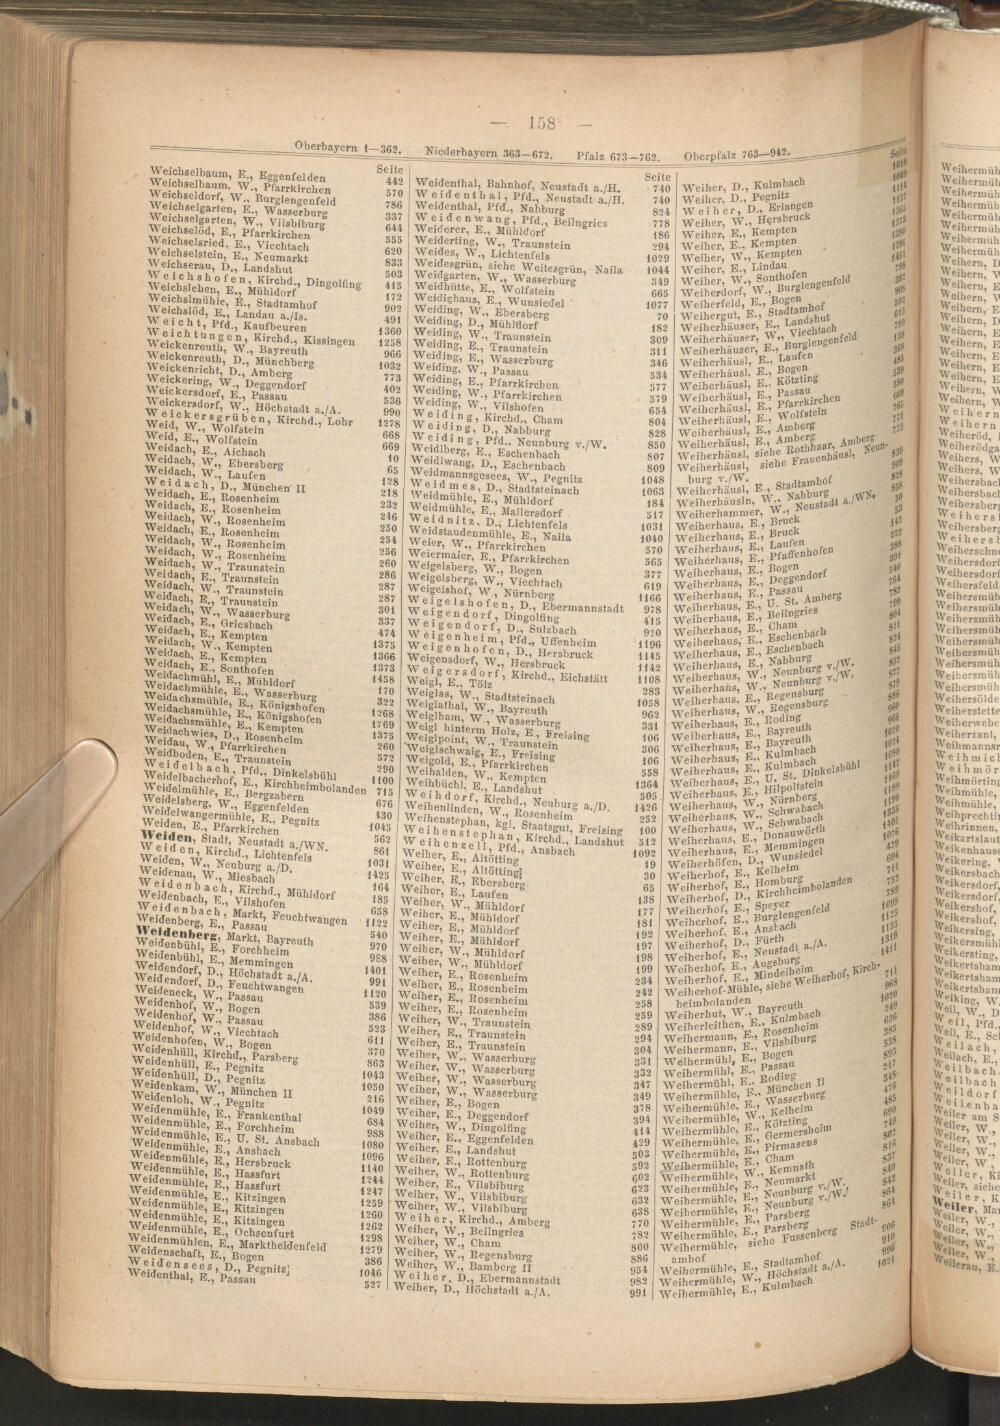 — 158 —
Oberbayern 1—362. Niederbayern 363—672. Pfalz 673—762. Oberpfalz 763—942.
Seite
Weichselbaum, E., Eggenfelden 442
Weichselbaum, W., Pfarrkirchen 570
Weichseldorf, W., Burglengenfeld 786
Weichselgarten, E., Wasserburg 337
Weichselgarten, W., Vilsbiburg 644
Weichselöd, E., Pfarrkirchen 555
Weichselsried, E., Viechtach 620
Weichselstein, E., Neumarkt 833
Weichserau, D., Landshut 503
Weichshofen, Kirchd., Dingolfing 415
Weichslehen, E., Mühldorf 172
Weichslmühle, E., Stadtamhof 902
Weichslöd, E., Landau a./Is. 491
Weicht, Pfd., Kaufbeuren 1360
Weichtungen, Kirchd., Kissingen 1258
Weickenreuth, W., Bayreuth 966
Weickenreuth, D., Münchberg 1032
Weickenricht, D., Amberg 773
Weickering, W., Deggendorf 402
Weickersdorf, E., Passau 536
Weickersdorf, W., Höchstadt a./A. 990
Weickersgrüben, Kirchd., Lohr 1278
Weid, W., Wolfstein 668
Weid, E., Wolfstein 669
Weidach, E., Aichach 10
Weidach, W., Ebersberg 65
Weidach, W., Laufen 128
Weidach, D., München II 218
Weidach, E., Rosenheim 232
Weidach, E., Rosenheim 246
Weidach, W., Rosenheim 250
Weidach, E., Rosenheim 254
Weidach, W., Rosenheim 256
Weidach, W., Rosenheim 260
Weidach, W., Traunstein 286
Weidach, E., Traunstein 287
Weidach, W., Traunstein 287
Weidach, E., Traunstein 301
Weidach, W., Wasserburg 337
Weidach, E., Griesbach 474
Weidach, E., Kempten 1375
Weidach, W., Kempten 1366
Weidach, E., Kempten 1373
Weidach, E., Sonthofen 1458
Weidachmühl, E., Mühldorf 170
Weidachmühle, E., Wasserburg 322
Weidachsmühle, E., Königshofen 1268
Weidachsmühle, E., Königshofen 1269
Weidachsmühle, E., Kempten 1375
Weidachwies, D., Rosenheim 260
Weidau, W., Pfarrkirchen 572
Weidboden, E., Traunstein 290
Weidelbach, Pfd., Dinkelsbühl 1100
Weidelbacherhof, E., Kirchheimbolanden 715
Weidelmühle, E., Bergzabern 676
Weidelsberg, W., Eggenfelden 430
Weidelwangermühle, E., Pegnitz 1045
Weiden, E., Pfarrkirchen 562
Weiden, Stadt, Neustadt a./WN. 861
Weiden, Kirchd., Lichtenfels 1031
Weiden, W., Neuburg a./D. 1425
Weidenau, W., Miesbach 164
Weidenbach, Kirchd., Mühldorf 185
Weidenbach, E., Vilshofen 658
Weidenbach, Markt, Feuchtwangen 1122
Weidenberg, E., Passau 540
Weidenberg, Markt, Bayreuth 970
Weidenbühl, E., Forchheim 988
Weidenbühl, E., Memmingen 1401
Weidendorf, D., Höchstadt a./A. 991
Weidendorf, D., Feuchtwangen 1120
Weideneck, W., Passau 539
Weidenhof, W., Bogen 386
Weidenhof, W., Passau 523
Weidenhof, W., Viechtach 611
Weidenhofen, W., Bogen 370
Weidenhüll, Kirchd., Parsberg 863
Weidenhüll, E., Pegnitz 1043
Weidenhüll, D., Pegnitz 1050
Weidenkam, W., München II 216
Weidenloh, W., Pegnitz 1049
Weidenmühle, E., Frankenthal 684
Weidenmühle, E., Forchheim 988
Weidenmühle, E., U. St. Ansbach 1080
Weidenmühle, E., Ansbach 1096
Weidenmühle, E., Hersbruck 1140
Weidenmühle, E., Hassfurt 1244
Weidenmühle, E., Hassfurt 1247
Weidenmühle, E., Kitzingen 1259
Weidenmühle, E., Kitzingen 1260
Weidenmühle, E., Kitzingen 1262
Weidenmühle, E., Ochsenfurt 1298
Weidenmühlen, E., Marktheidenfeld 1279
Weidenschaft, E., Bogen 386
Weidensees, D., Pegnitz 1046
Weidenthal, E., Passau 527
Seite
Weidenthal, Bahnhof, Neustadt a./H. 740
Weidenthal, Pfd., Neustadt a./H. 740
Weidenthal, Pfd., Nabburg 824
Weidenwang, Pfd., Beilngries 778
Weiderer, E., Mühldorf 186
Weiderting, W., Traunstein 294
Weides, W., Lichtenfels 1029
Weidesgrün, siehe Weitesgrün, Naila 1044
Weidgarten, W., Wasserburg 349
Weidhütte, E., Wolfstein 665
Weidighaus, E., Wunsiedel 1077
Weiding, W., Ebersberg 70
Weiding, D., Mühldorf 182
Weiding, W., Traunstein 309
Weiding, E., Traunstein 311
Weiding, E., Wasserburg 346
Weiding, W., Passau 534
Weiding, E., Pfarrkirchen 577
Weiding, W., Pfarrkirchen 579
Weiding, W., Vilshofen 654
Weiding, Kirchd., Cham 804
Weiding, D., Nabburg 828
Weiding, Pfd., Neunburg v./W. 850
Weidlberg, E., Eschenbach 807
Weidlwang, D., Eschenbach 809
Weidmannsgesees, W., Pegnitz 1048
Weidmes, D., Stadtsteinach 1063
Weidmühle, E., Mühldorf 184
Weidmühle, E., Mallersdorf 517
Weidnitz, D., Lichtenfels 1031
Weidstaudenmühle, E., Naila 1040
Weier, W., Pfarrkirchen 570
Weiermaier, E., Pfarrkirchen 565
Weigelsberg, W., Bogen 377
Weigelsberg, W., Viechtach 619
Weigelshof, W., Nürnberg 1166
Weigelshofen, D., Ebermannstadt 978
Weigendorf, Dingolfing 415
Weigendorf, D., Sulzbach 920
Weigenheim, Pfd., Uffenheim 1196
Weigenhofen, D., Hersbruck 1145
Weigensdorf, W., Hersbruck 1142
Weigersdorf, Kirchd., Eichstätt 1108
Weigl, E., Tölz 283
Weiglas, W., Stadtsteinach 1058
Weiglathal, W., Bayreuth 962
Weiglham, W., Wasserburg 331
Weigl hinterm Holz, E., Freising 106
Weiglpoint, W., Traunstein 306
Weiglschwaig, E., Freising 106
Weigold, E., Pfarrkirchen 558
Weihalden, W., Kempten 1364
Weihbüchl, E., Landshut 505
Weihdorf, Kirchd., Neuburg a./D. 1426
Weihenlinden, W., Rosenheim 252
Weihenstephan, kgl. Staatsgut, Freising 100
Weihenstephan, Kirchd., Landshut 512
Weihenzell, Pfd., Ansbach 1092
Weiher, E., Altötting 19
Weiher, E., Altötting 30
Weiher, E., Ebersberg 65
Weiher, E., Laufen 138
Weiher, W., Mühldorf 177
Weiher, E., Mühldorf 181
Weiher, E., Mühldorf 192
Weiher, E., Mühldorf 197
Weiher, W., Mühldorf 198
Weiher, W., Mühldorf 199
Weiher, E., Rosenheim 234
Weiher, E., Rosenheim 242
Weiher, E., Rosenheim 258
Weiher, E., Rosenheim 259
Weiher, W., Traunstein 289
Weiher, E., Traunstein 294
Weiher, E., Traunstein 304
Weiher, W., Wasserburg 331
Weiher, W., Wasserburg 332
Weiher, W., Wasserburg 347
Weiher, W., Wasserburg 349
Weiher, E., Bogen 378
Weiher, E., Deggendorf 394
Weiher, W., Dingolfing 414
Weiher, E., Eggenfelden 429
Weiher, E., Landshut 503
Weiher, E., Rottenburg 592
Weiher, W., Rottenburg 602
Weiher, E., Vilsbiburg 623
Weiher, W., Vilsbiburg 632
Weiher, W., Vilsbiburg 638
Weiher, Kirchd., Amberg 770
Weiher, W., Beilngries 782
Weiher, W., Cham 800
Weiher, W., Regensburg 886
Weiher, W., Bamberg II 954
Weiher, D., Ebermannstadt 982
Weiher, D., Höchstadt a./A. 991
Seite
Weiher, D., Kulmbach 1018
Weiher, D., Pegnitz 1049
Weiher, D., Erlangen 1114
Weiher, W., Hersbruck 1137
Weiher, E., Kempten
Weiher, E., Kempten
Weiher, W., Kempten 1380
Weiher, E., Lindau 1391
Weiher, W., Sonthofen 1451
Weiherdorf, W., Burglengenfeld 788
Weiherfeld, E., Bogen 382
Weihergut, E., Stadtamhof 908
Weiherhäuser, E., Landshut 502
Weiherhäuser, W., Viechtach 613
Weiherhäuser, E., Burglengenfeld 790
Weiherhäusl, E., Laufen 138
Weiherhäusl, E., Bogen 368
Weiherhäusl, E., Kötzting 488
Weiherhäusl, E., Passau 539
Weiherhäusl, E., Pfarrkirchen 580
Weiherhäusl, E., Wolfstein 669
Weiherhäusl, E., Amberg 765
Weiherhäusl, E., Amberg 771
Weiherhäusl, siehe Rothhaar, Amberg 773
Weiherhäusl, siehe Frauenhäusl, Neun-
burg v./W. 839
Weiherhäusl, E., Stadtamhof 909
Weiherhäusln, W., Nabburg 828
Weiherhammer, W., Neustadt a./WN. 858
Weiherhaus, E., Bruck 50
Weiherhaus, E., Bruck 53
Weiherhaus, E., Laufen 142
Weiherhaus, E., Pfaffenhofen 222
Weiherhaus, E., Bogen 388
Weiherhaus, E., Deggendorf 391
Weiherhaus, E., Passau 540
Weiherhaus, E., U. St. Amberg 764
Weiherhaus, E., Beilngries 782
Weiherhaus, E., Cham 799
Weiherhaus, E., Eschenbach 804
Weiherhaus, E., Eschenbach 811
Weiherhaus, E., Nabburg 824
Weiherhaus, W., Neunburg v./W. 845
Weiherhaus, W., Neunburg v./W. 852
Weiherhaus, E., Regensburg 877
Weiherhaus, W., Regensburg 879
Weiherhaus, E., Roding 886
Weiherhaus, E., Bayreuth 960
Weiherhaus, E., Bayreuth 966
Weiherhaus, E., Kulmbach 1020
Weiherhaus, E., Kulmbach 1024
Weiherhaus, E., U. St. Dinkelsbühl 1080
Weiherhaus, E., Hilpoltstein 1147
Weiherhaus, W., Nürnberg 1169
Weiherhaus, W., Schwabach 1189
Weiherhaus, W., Schwabach 1190
Weiherhaus, E., Donauwörth
Weiherhaus, E., Memmingen 1401
Weiherhöfen, D., Wunsiedel 1076
Weiherhof, E., Kelheim 479
Weiherhof, E., Homburg 694
Weiherhof, D., Kirchheimbolanden 711
Weiherhof, E., Speyer 752
Weiherhof, E., Burglengenfeld 789
Weiherhof, E., Ansbach 1095
Weiherhof, D., Fürth 1125
Weiherhof, E., Neustadt a./A. 1153
Weiherhof, E., Augsburg 1319
Weiherhof, E., Mindelheim 1411
Weiherhof-Mühle, siehe Weiherhof, Kirch-
heimbolanden 711
Weiherhut, W., Bayreuth 968
Weiherleithen, E., Kulmbach 1020
Weihermann, E., Rosenheim 249
Weihermann, E., Vilsbiburg 636
Weihermühl, E., Bogen 385
Weihermühl, E., Passau 538
Weihermühl, E., Roding 895
Weihermühle, E., München II 217
Weihermühle, E., Wasserburg 348
Weihermühle, W., Kelheim 476
Weihermühle, E., Kötzting 485
Weihermühle, E., Germersheim 690
Weihermühle, E., Pirmasens 749
Weihermühle, E., Cham 802
Weihermühle, W., Kemnath 816
Weihermühle, E., Neumarkt 837
Weihermühle, E., Neunburg v./W. 840
Weihermühle, E., Neunburg v./W. 842
Weihermühle, E., Parsberg 864
Weihermühle, E., Parsberg 864
Weihermühle, siehe Fussenberg Stadt-
amhof 906
Weihermühle, E., Stadtamhof 910
Weihermühle, W., Höchstadt a./A. 996
Weihermühle, E., Kulmbach 1021